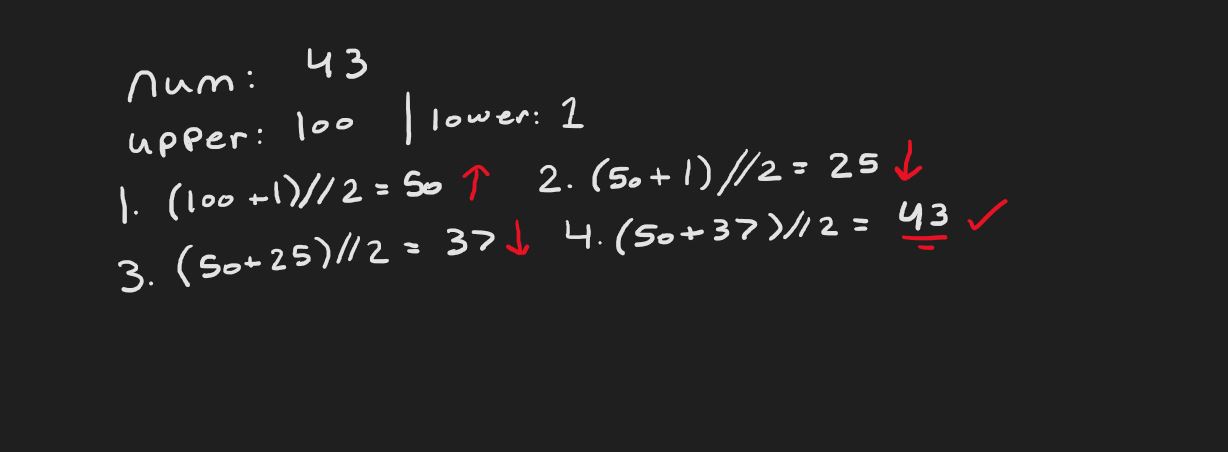 num: 43
upper: 100 | lower: 1
1. (100+1)//2 = 50 ↑ 2. (50+1)//2 = 25 ↓
3. (50+25)//2 = 37 ↓ 4. (50+37)//2 = 43 ✓